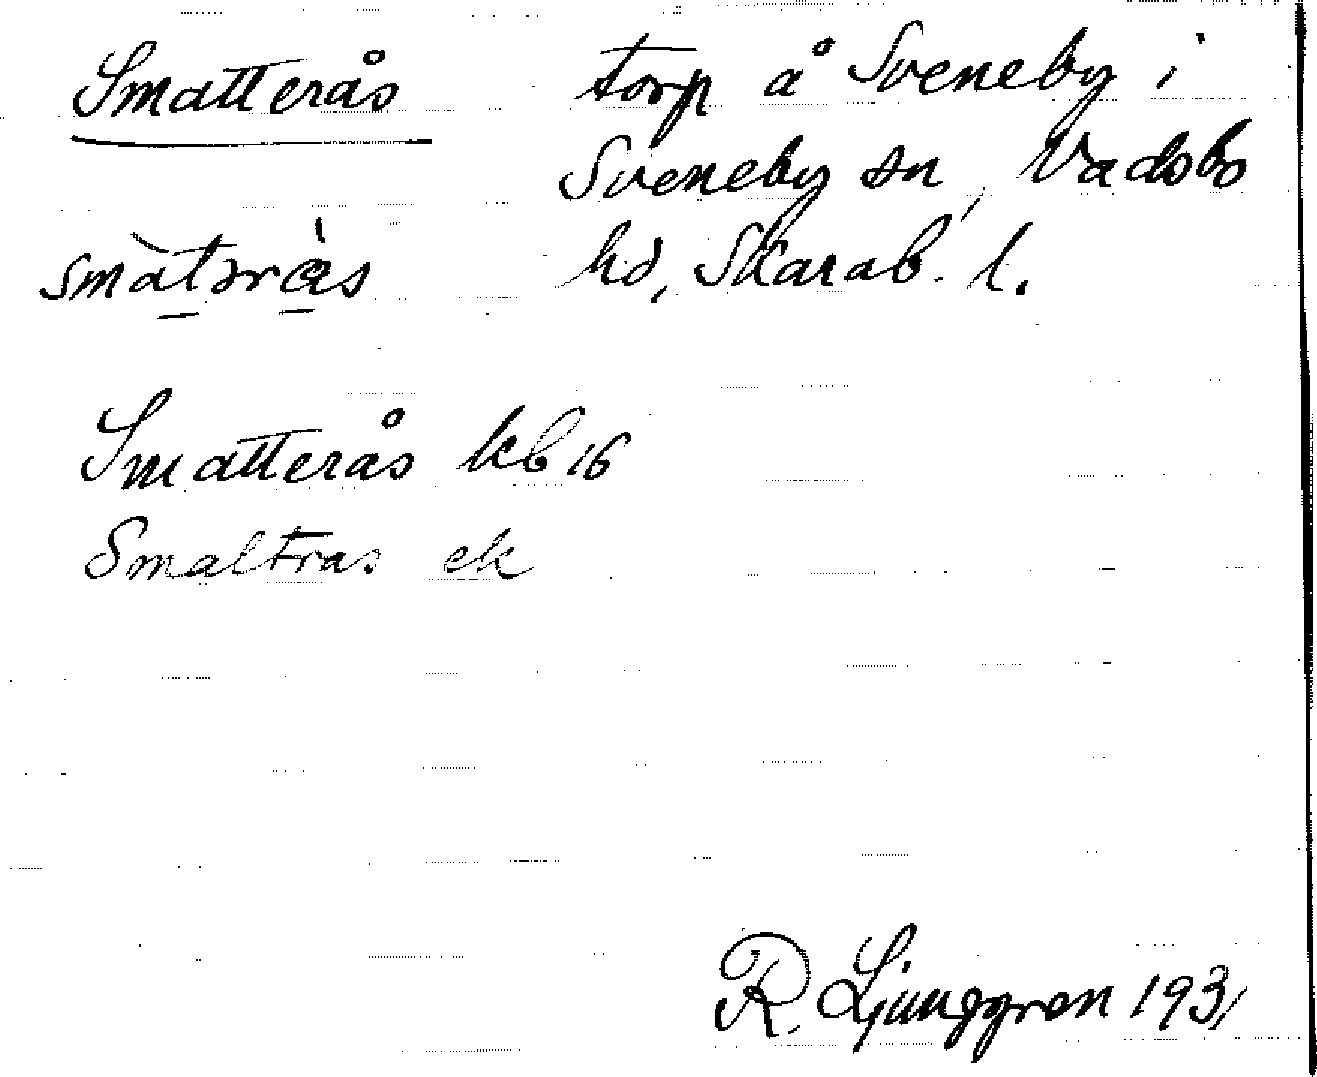 Smatterås torp å Sveneby i
Sveneby sn, Vadsbo
smàtəràs hd, Skarab. l.
Smatterås kb 16
Smaltras ek
R. Ljunggren 1931